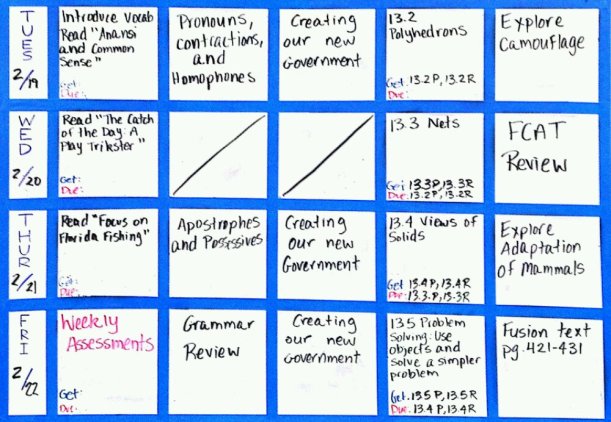 TUES
2/19
Introduce Vocab
Read "Anansi
and Common
Sense"
Get:
Due:
Pronouns,
contractions,
and
Homophones
Creating
our new
Government
13.2
Polyhedrons
Get: 13.2P, 13.2R
Due:
Explore
Camouflage
WED
2/20
Read "The Catch
of the Day: A
Play Trikster"
Get:
Due:
13.3 Nets
Get: 13.3P, 13.3R
Due: 13.2P, 13.2R
FCAT
Review
THUR
2/21
Read "Focus on
Florida Fishing"
Get:
Due:
Apostrophes
and Possessives
Creating
our new
Government
13.4 Views of
Solids
Get: 13.4P, 13.4R
Due: 13.3.P, 13.3R
Explore
Adaptation
of Mammals
FRI
2/22
Weekly
Assessments
Get:
Due:
Grammar
Review
Creating
our new
Government
13.5 Problem
Solving: Use
objects and
solve a simpler
problem
Get: 13.5P, 13.5R
Due: 13.4P, 13.4R
Fusion text
pg. 421-431